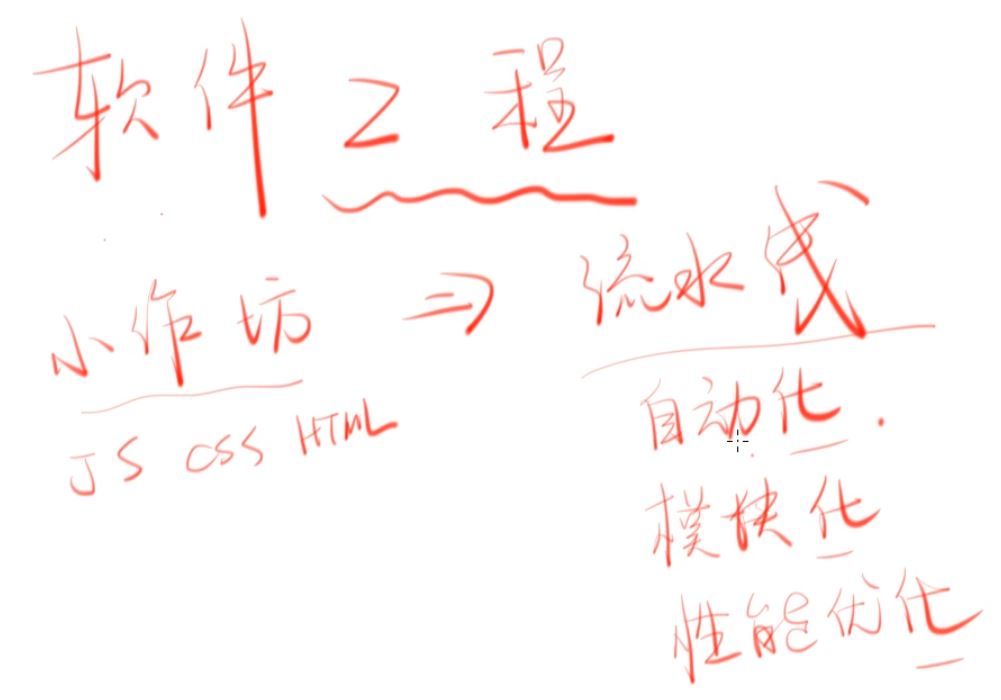 软件工程
小作坊 => 流水线
JS CSS HTML
自动化.
模块化
性能优化